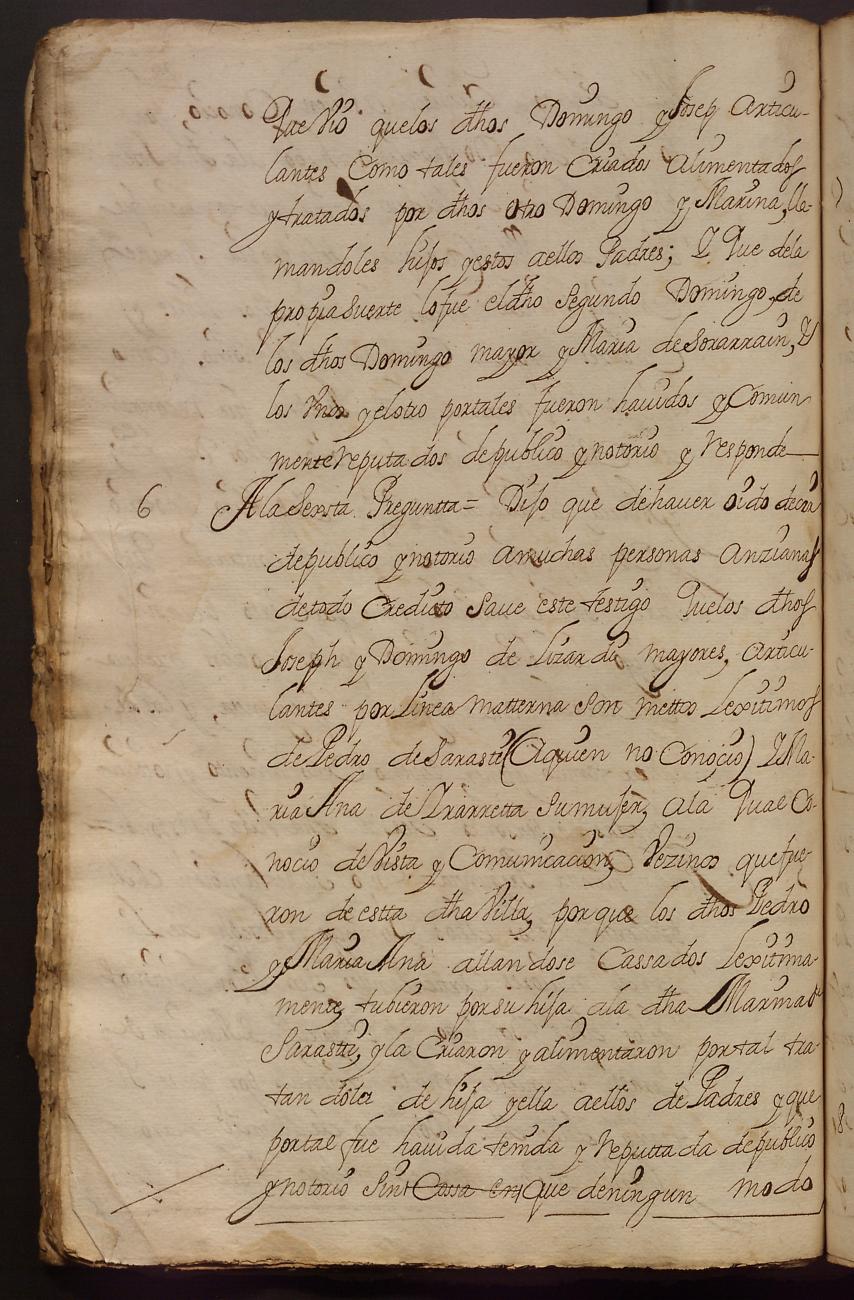 Que Vio quelos dhos Domingo y Joseq Articu-
lantes Como tales fueron Criados Alimentados
y tratados por dhos otro Domingo y Marina, lla-
mandoles hijos y estos aellos Padres; Y Que dela
propia Suerte lofue eldho Segundo Domingo, de
los dhos Domingo mayor y Maria de Sorarrain, Y
los Unos y elotro portales fueron hauidos y Comun
mente reputados de publico y notorio y responde
6 Ala Sexsta Preguntta = Dijo que de hauer oido decir
de publico y notorio amuchas personas Anzianas
de todo Credicto Saue este testigo Quelos dhos
Joseph y Domingo de Lizardi mayores, Articu-
lantes por Linea matterna Son niettos Lexitimos
de Pedro de Sarasti (Aquien no Conocio) Y Ma-
ria Ana de Yrarretta Su mujer, ala Qual Co-
nocio de Vista y Comunicacion, Vezinos que fue-
ron de estta dha Villa, por que los dhos Pedro
y Maria Ana allandose Cassados Lexitima-
mente, tubieron por su hija ala dha Marina de
Sarasti, y la Criaron y alimentaron por tal tra-
tandola de hija y ella aellos de Padres y que
por tal fue hauida tenida y Reputtada de publico
y notorio Sin Cossa en Que de ningun modo